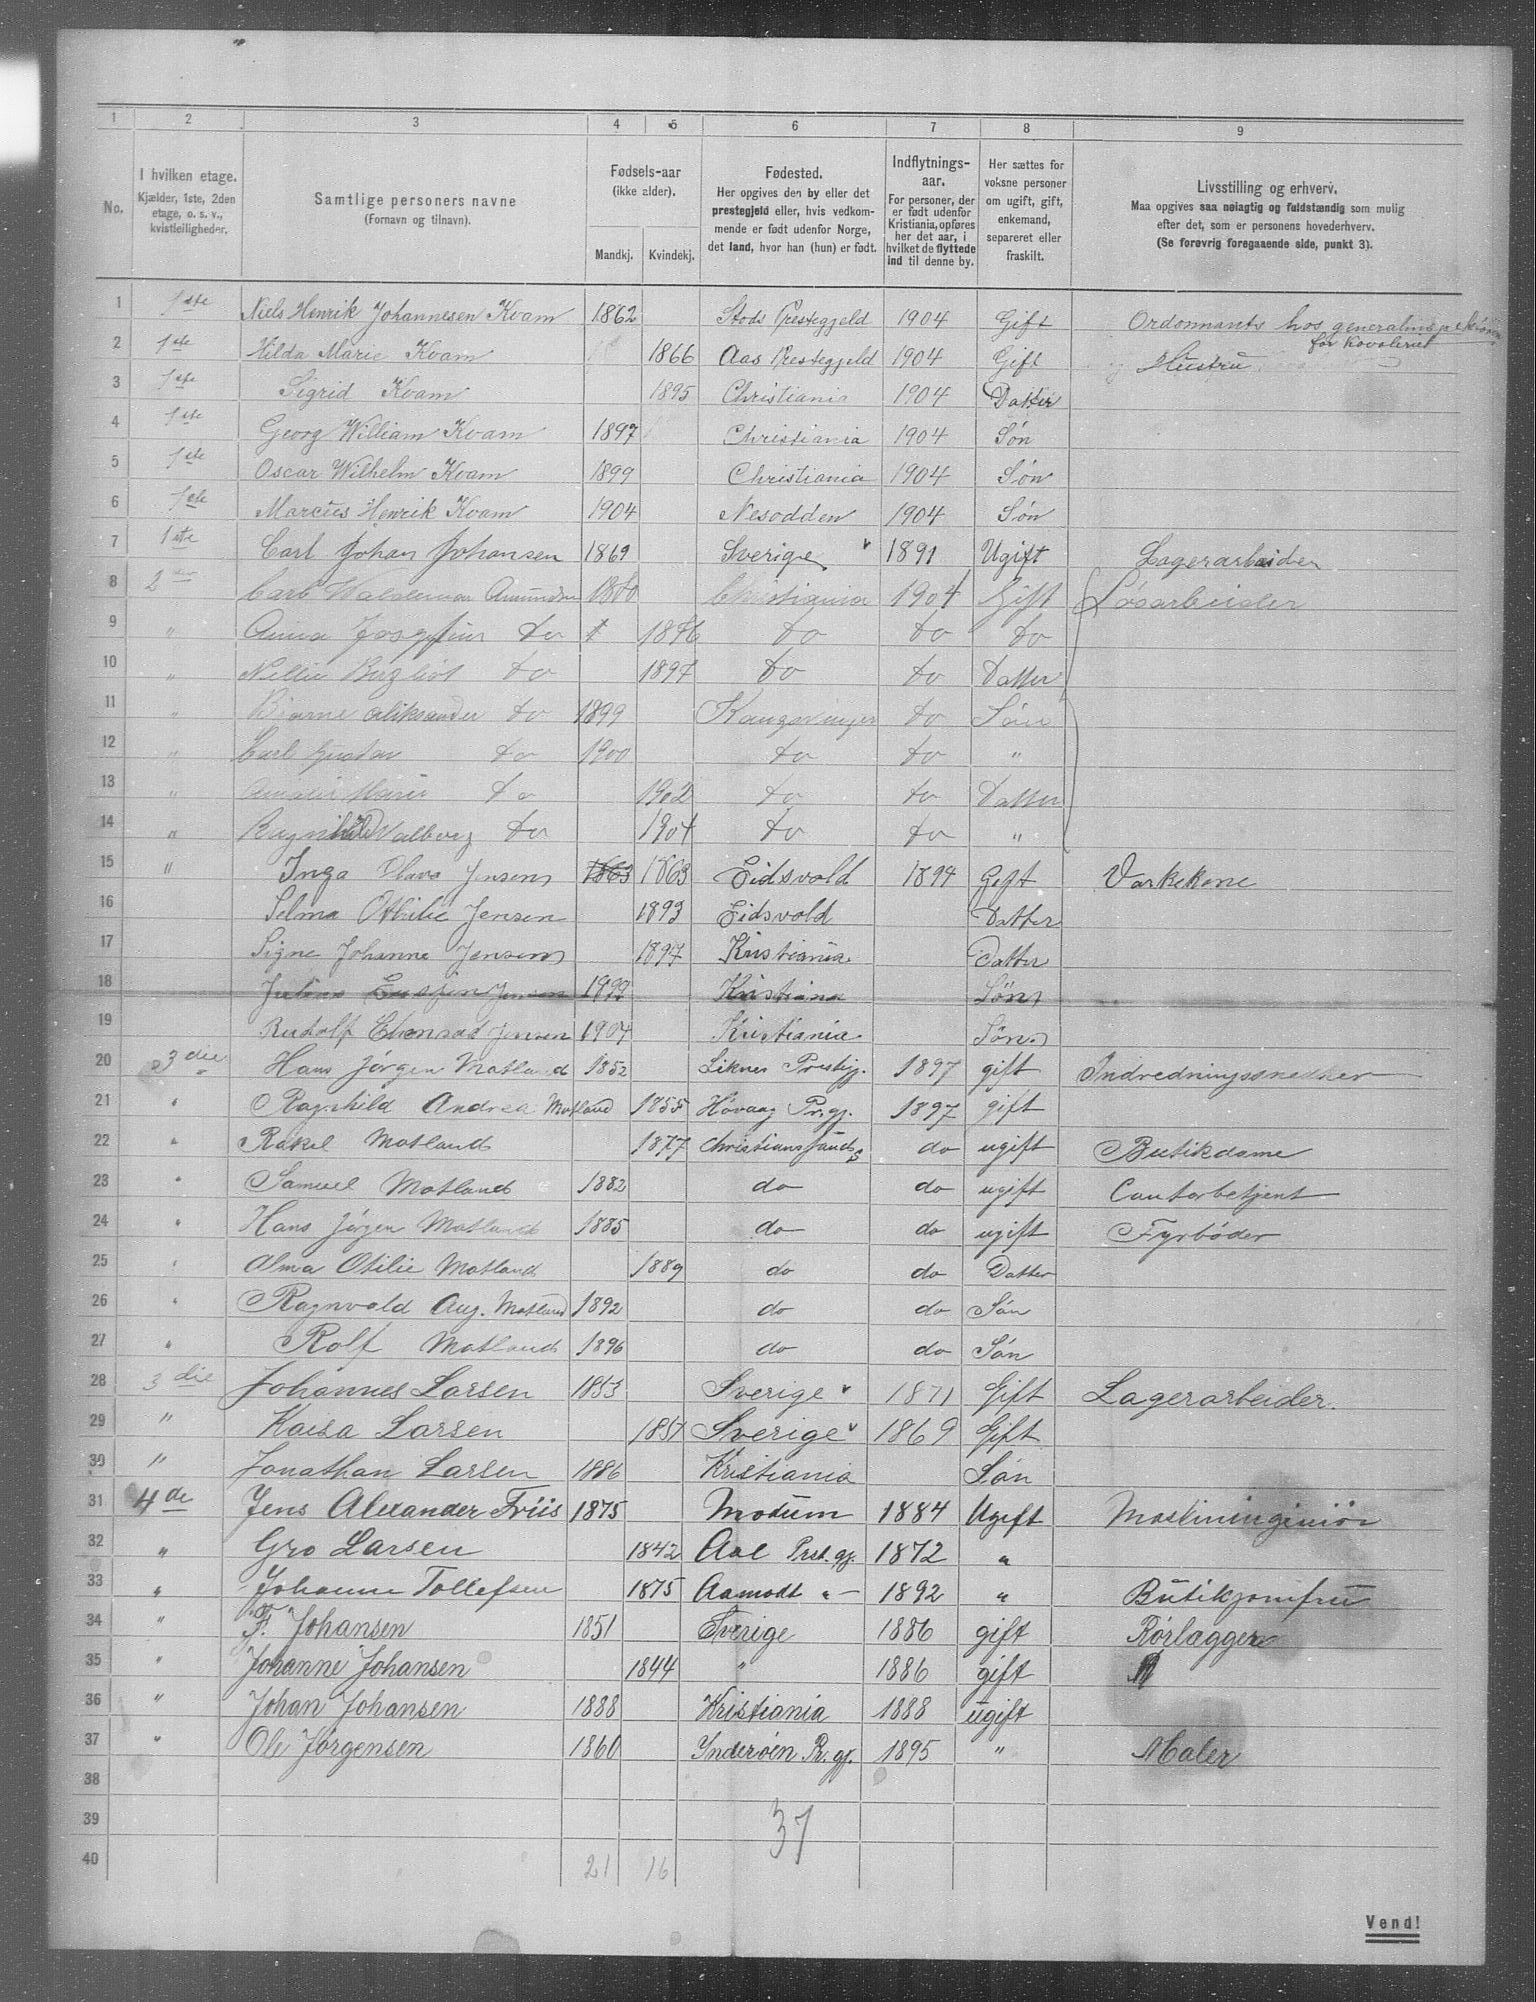 1 2 3 4 5 6 7 8 9
No.
I hvilken etage.
Kjælder, 1ste, 2den
etage, o. s. v.,
kvistleiligheder.
Samtlige personers navne
(Fornavn og tilnavn).
Fødsels-aar
(ikke alder).
Mandkj. Kvindekj.
Fødested.
Her opgives den by eller det
prestegjeld eller, hvis vedkom-
mende er født udenfor Norge,
det land, hvor han (hun) er født.
Indflytnings-
aar.
For personer, der
er født udenfor
Kristiania, opføres
her det aar, i
hvilket de flyttede
ind til denne by.
Her sættes for
voksne personer
om ugift, gift,
enkemand,
separeret eller
fraskilt.
Livsstilling og erhverv.
Maa opgives saa nøiagtig og fuldstændig som mulig
efter det, som er personens hovederhverv.
(Se forøvrig foregaaende side, punkt 3).
1 1ste Niels Henrik Johannesen Kvam 1862 Stods Prestegjeld 1904 Gift Ordonnants hos generalinspektøren
for Kavaleriet
2 1ste Hilda Marie Kvam 1866 Aas Prestegjeld 1904 Gift Hustru
3 1ste Sigrid Kvam 1895 Christiania 1904 Datter
4 1ste Georg William Kvam 1897 Christiania 1904 Søn
5 1ste Oscar Wilhelm Kvam 1899 Christiania 1904 Søn
6 1ste Marcius Henrik Kvam 1904 Nesodden 1904 Søn
7 1ste Carl Johan Johansen 1869 Sverige 1891 Ugift Lagerarbeider
8 2 Carl Waldemar Amundsen Christiania 1904 Gift Løsarbeider
9 " Anna Josefine do 1876 do do do
10 " Nellie do 1897 do do Datter
11 " Bjarne Aliksander do 1899 Kongsvinger do Søn
12 " Carl Gustav do 1900 do do "
13 " Marie do 1902 do do Datter
14 " Ragnhild Valborg do 1904 do do "
15 " Inga Olava Jensen 1863 1863 Eidsvold 1894 Gift Vaskekone
16 Selma Othilie Jensen 1893 Eidsvold Datter
17 Signe Johanne Jensen 1897 Kristiania Datter
18 Jensen 1899 Kristiania Søn
19 Rudolf Jensen 1904 Kristiania Søn
20 3die Hans Jørgen Matland 1852 Liknes Prestgj. 1897 gift Indredningssnedker
21 " Ragnhild Andrea Matland 1855 Høvaag Pr.gj. 1897 gift
22 " Rakel Matland 1877 Christianssands do ugift Butikdame
23 " Samuel Matland 1882 do do ugift Contorbetjent
24 " Hans Jørgen Matland 1885 do do ugift Fyrbøder
25 " Alma Otilie Matland 1889 do do Datter
26 " Ragnvald Aug. Matland 1892 do do Søn
27 " Rolf Matland 1896 do do Søn
28 3die Johannes Larsen 1853 Sverige 1871 Gift Lagerarbeider.
29 " Kaisa Larsen 1851 Sverige 1869 Gift
30 " Jonathan Larsen 1886 Kristiania Søn
31 4de Jens Alexander Friis 1875 Modum 1884 Ugift Maskiningeniør
32 " Gro Larsen 1842 Aal Prst.gj. 1872 "
33 " Johanne Tollefsen 1875 Aamodt " 1892 " Butikjomfru
34 " F. Johansen 1851 Sverige 1886 gift Rørlægger
35 " Johanne Johansen 1844 " 1886 gift
36 " Johan Johansen 1888 Kristiania 1888 ugift
37 " Ole Jørgensen 1860 Ynderøen Pr.gj. 1895 " Maler
38
39 37
40 21 16
Vend!